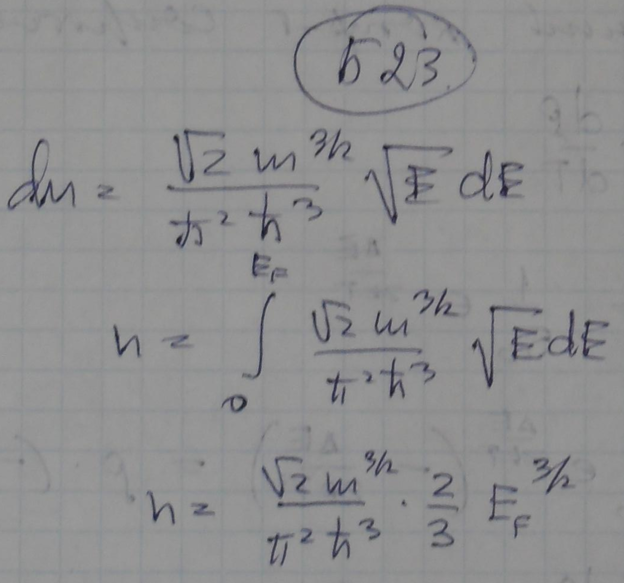 Б23
dn = √2 m^3/2 / π² ħ³ √E dE
n = ∫₀^E_F √2 m^3/2 / π² ħ³ √E dE
n = √2 m^3/2 / π² ħ³ · 2/3 E_F^3/2